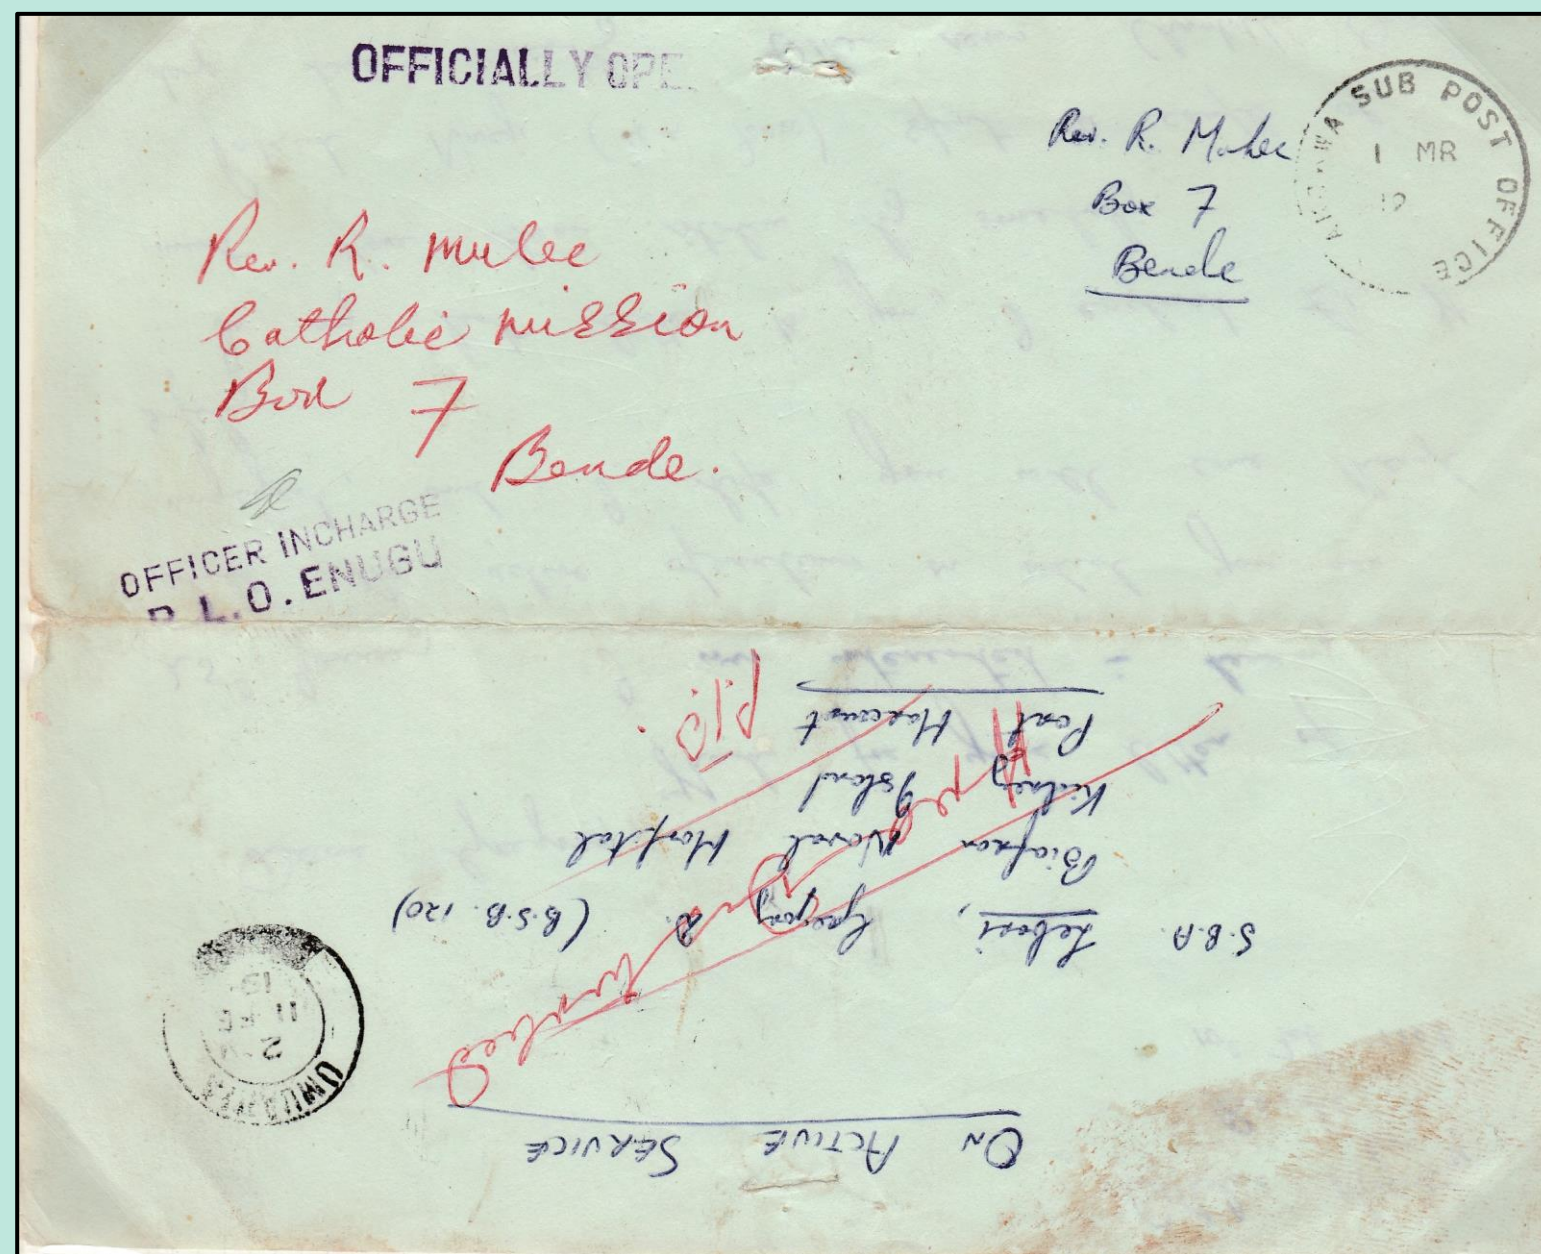 OFFICIALLY OPE
Rev. R.
Box 7
Bende
SUB POST OFFICE
1 MR
Rev. R. Mulee
Catholic Mission
Box 7
Bende.
OFFICER INCHARGE
D.L.O. ENUGU
ON ACTIVE SERVICE
S.B.A. Lebari, Gregory D. (B.S.B. 120)
Biafran Naval Hospital
Kidney Island
Port Harcourt
P.T.O.
UMUAHIA
2
11 FE
19